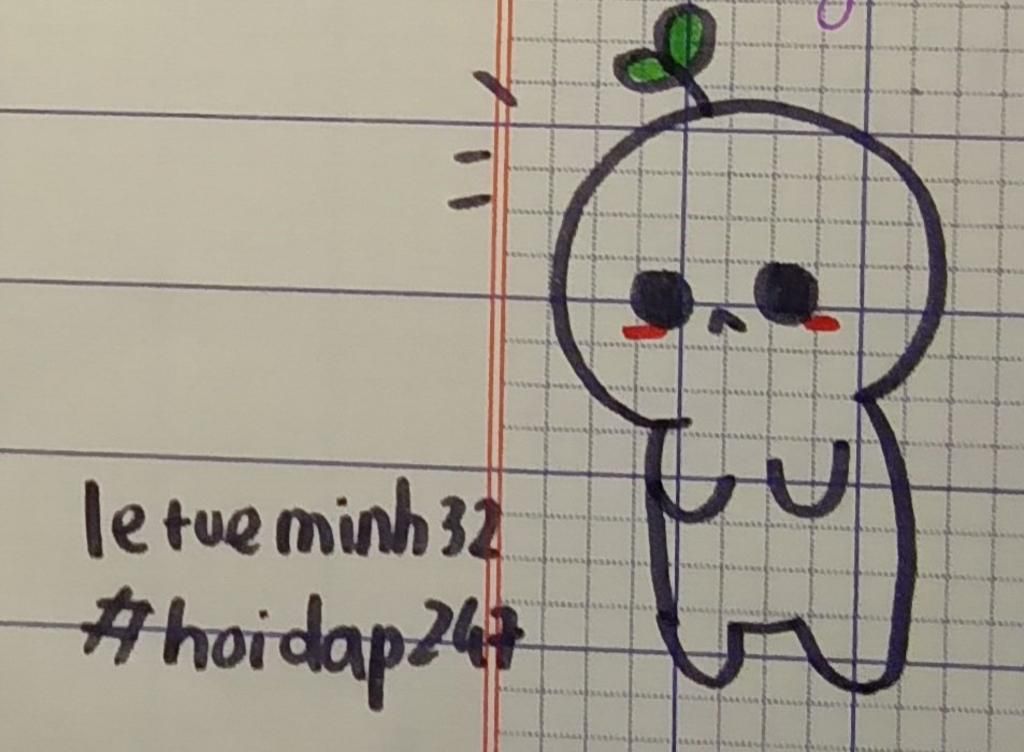 letueminh32
#hoidap247